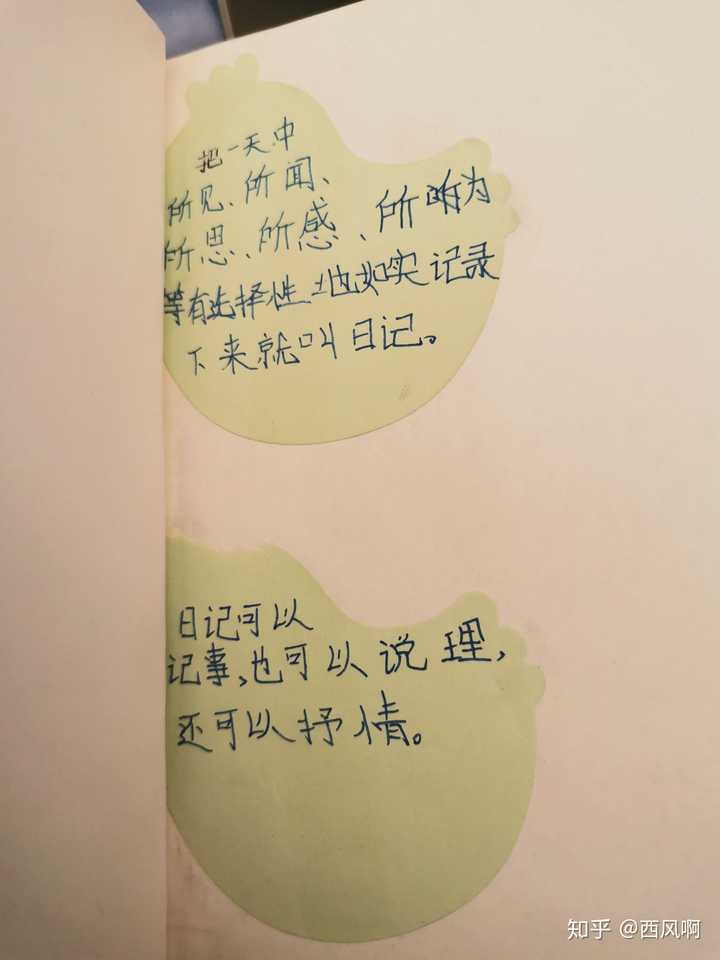 把一天中
所见、所闻、
所思、所感、所为
等有选择性地如实记录
下来就叫日记。
日记可以
记事,也可以说理,
还可以抒情。
知乎 @西风啊